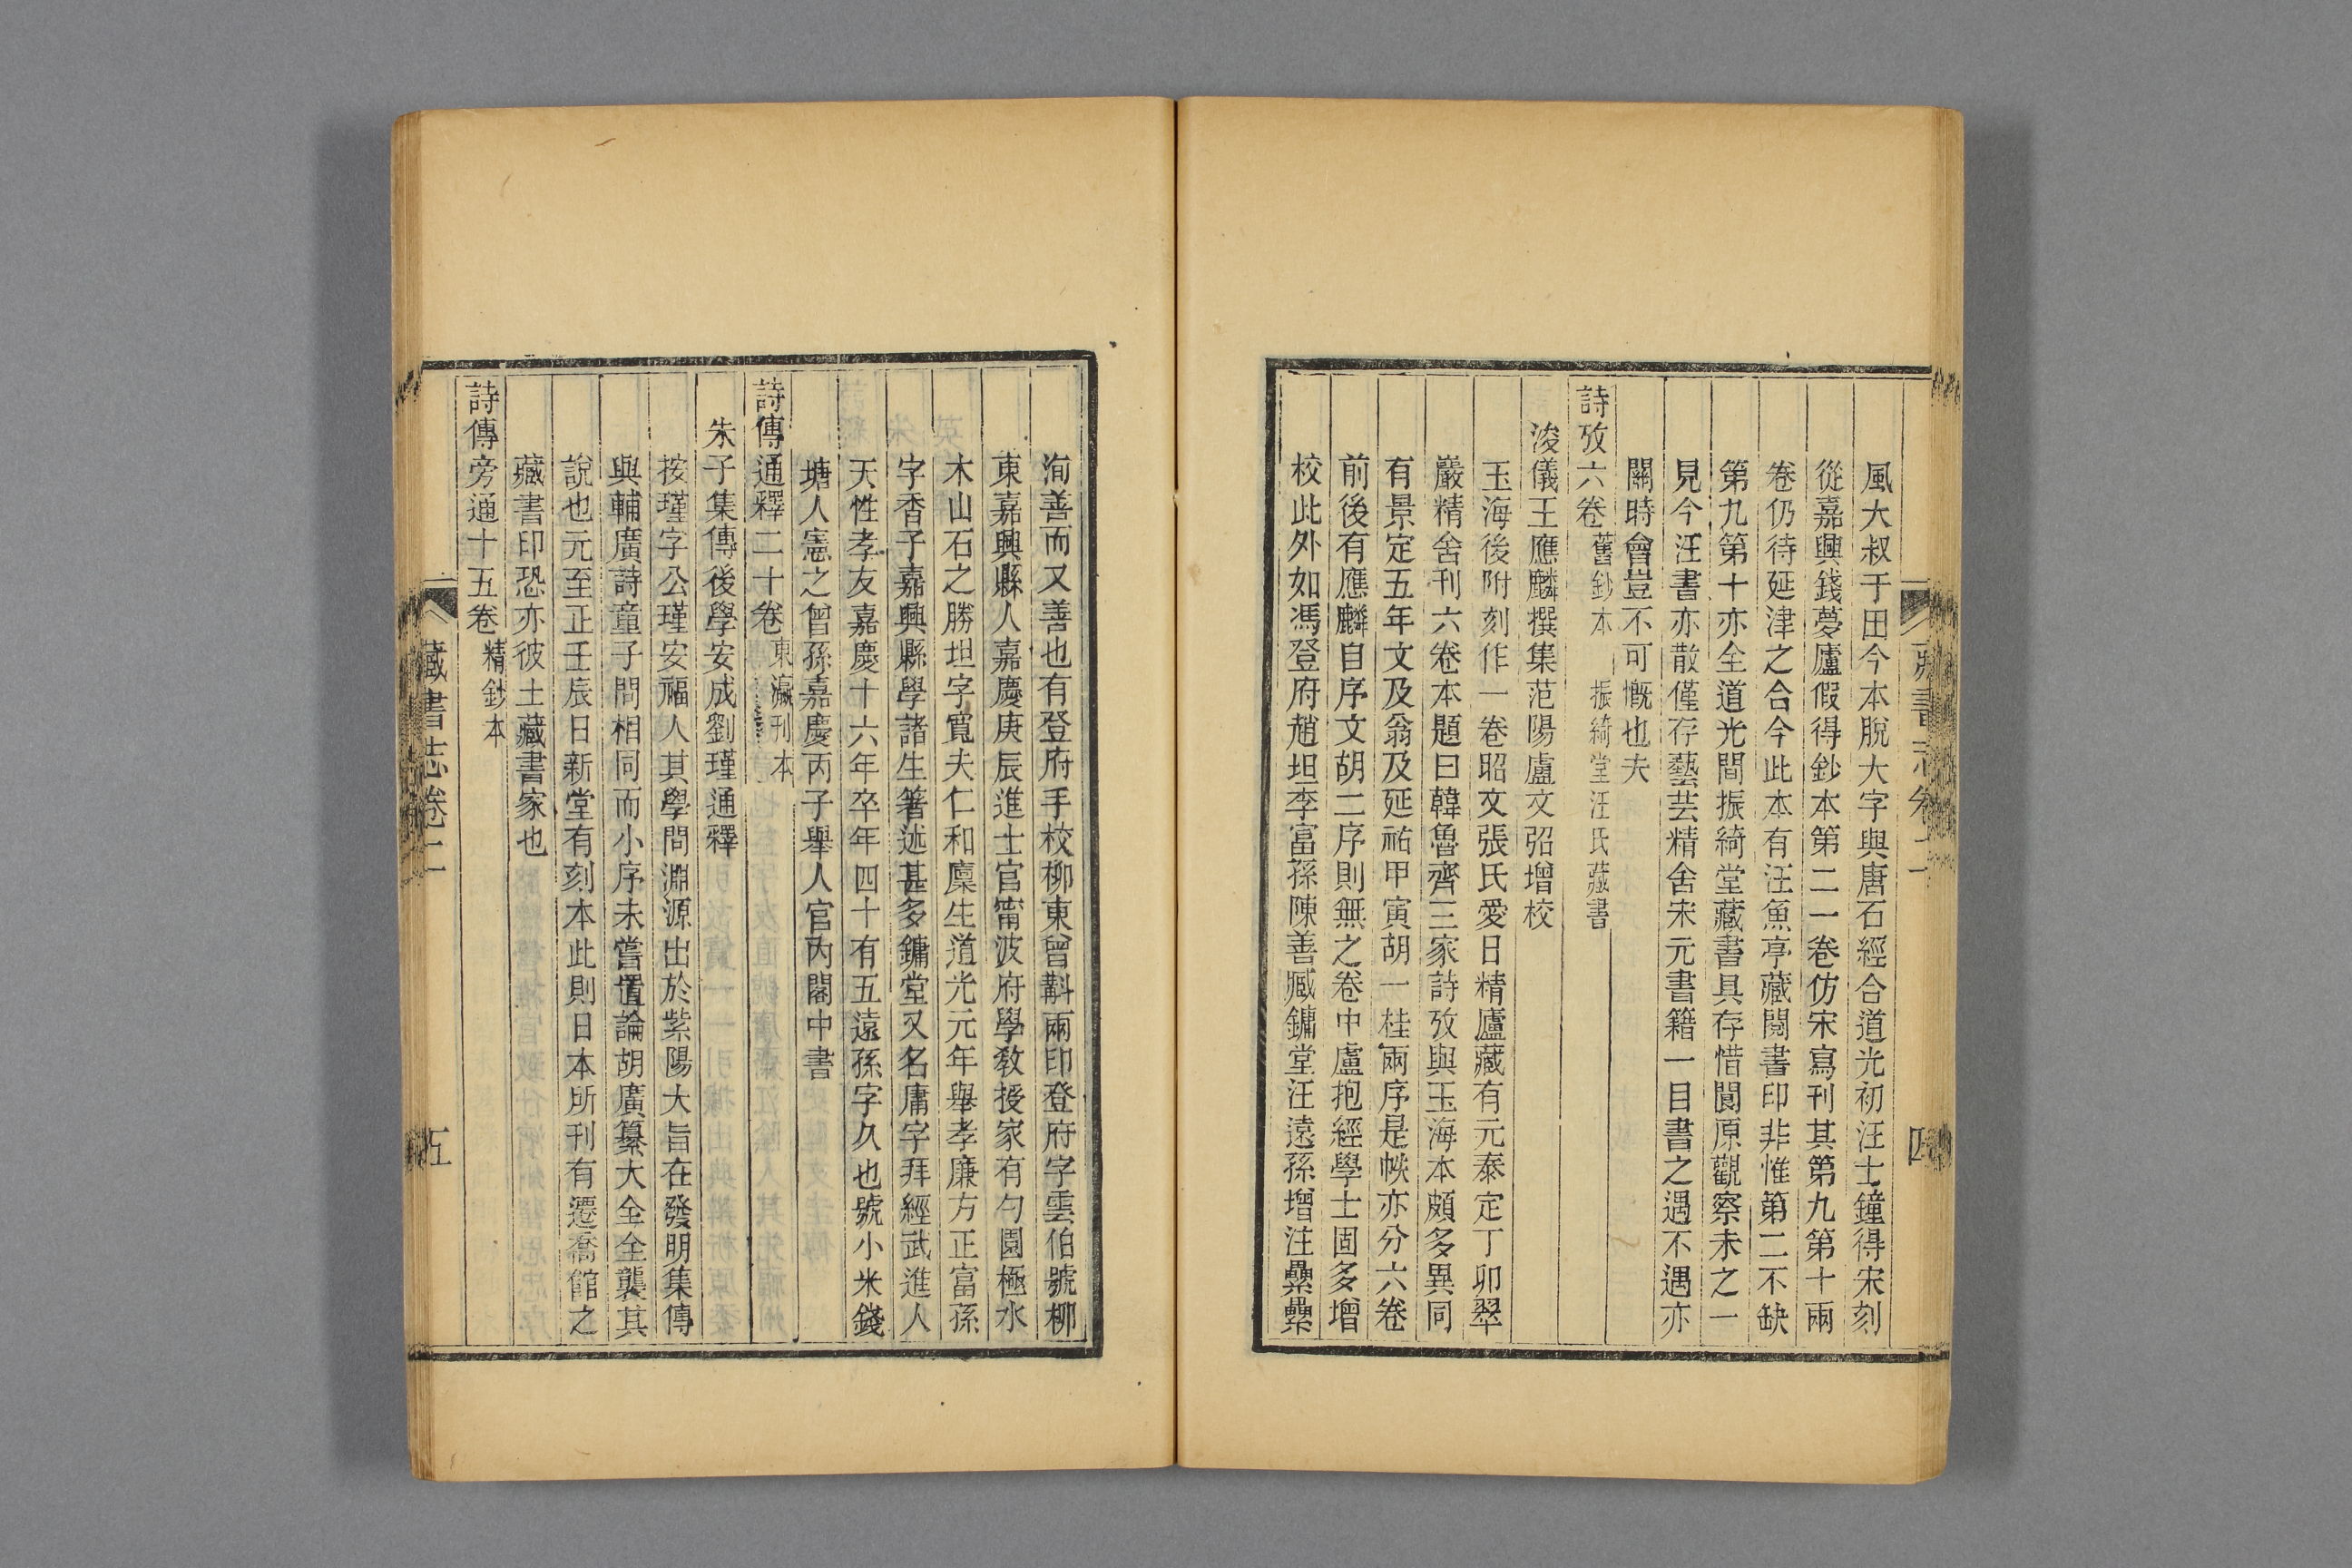 風大叔于田今本脫大字與唐石經合道光初汪士鐘得宋刻
從嘉興錢夢廬假得鈔本第二一卷仿宋寫刊其第九第十兩
卷仍待延津之合今此本有汪魚亭藏閱書印非惟第二不缺
第九第十亦全道光間振綺堂藏書具存惜閬原觀察未之一
見今汪書亦散僅存藝芸精舍宋元書籍一目書之遇不遇亦
關時會豈不可慨也夫
詩攷六卷 舊鈔本 振綺堂汪氏藏書
浚儀王應麟撰集范陽盧文弨增校
玉海後附刻作一卷昭文張氏愛日精廬藏有元泰定丁卯翠
嚴精舍刊六卷本題曰韓魯齊三家詩攷與玉海本頗多異同
有景定五年文及翁及延祐甲寅胡一桂兩序是帙亦分六卷
前後有應麟自序文胡二序則無之卷中盧抱經學士固多增
校此外如馮登府趙坦李富孫陳善臧鏞堂汪遠孫增注纍纍
洵善而又善也有登府手校柳東曾斠兩印登府字雲伯號柳
東嘉興縣人嘉慶庚辰進士官甯波府學教授家有勺園極水
木山石之勝坦字寬夫仁和廩生道光元年舉孝廉方正富孫
字香子嘉興縣學諸生箸述甚多鏞堂又名庸字拜經武進人
天性孝友嘉慶十六年卒年四十有五遠孫字久也號小米錢
塘人憲之曾孫嘉慶丙子舉人官內閣中書
詩傳通釋二十卷 東瀛刊本
朱子集傳後學安成劉瑾通釋
按瑾字公瑾安福人其學問淵源出於紫陽大旨在發明集傳
與輔廣詩童子問相同而小序未嘗置論胡廣纂大全全襲其
說也元至正壬辰日新堂有刻本此則日本所刊有遷喬館之
藏書印恐亦彼土藏書家也
詩傳旁通十五卷 精鈔本
藏書志卷二
五
藏書志卷二
四